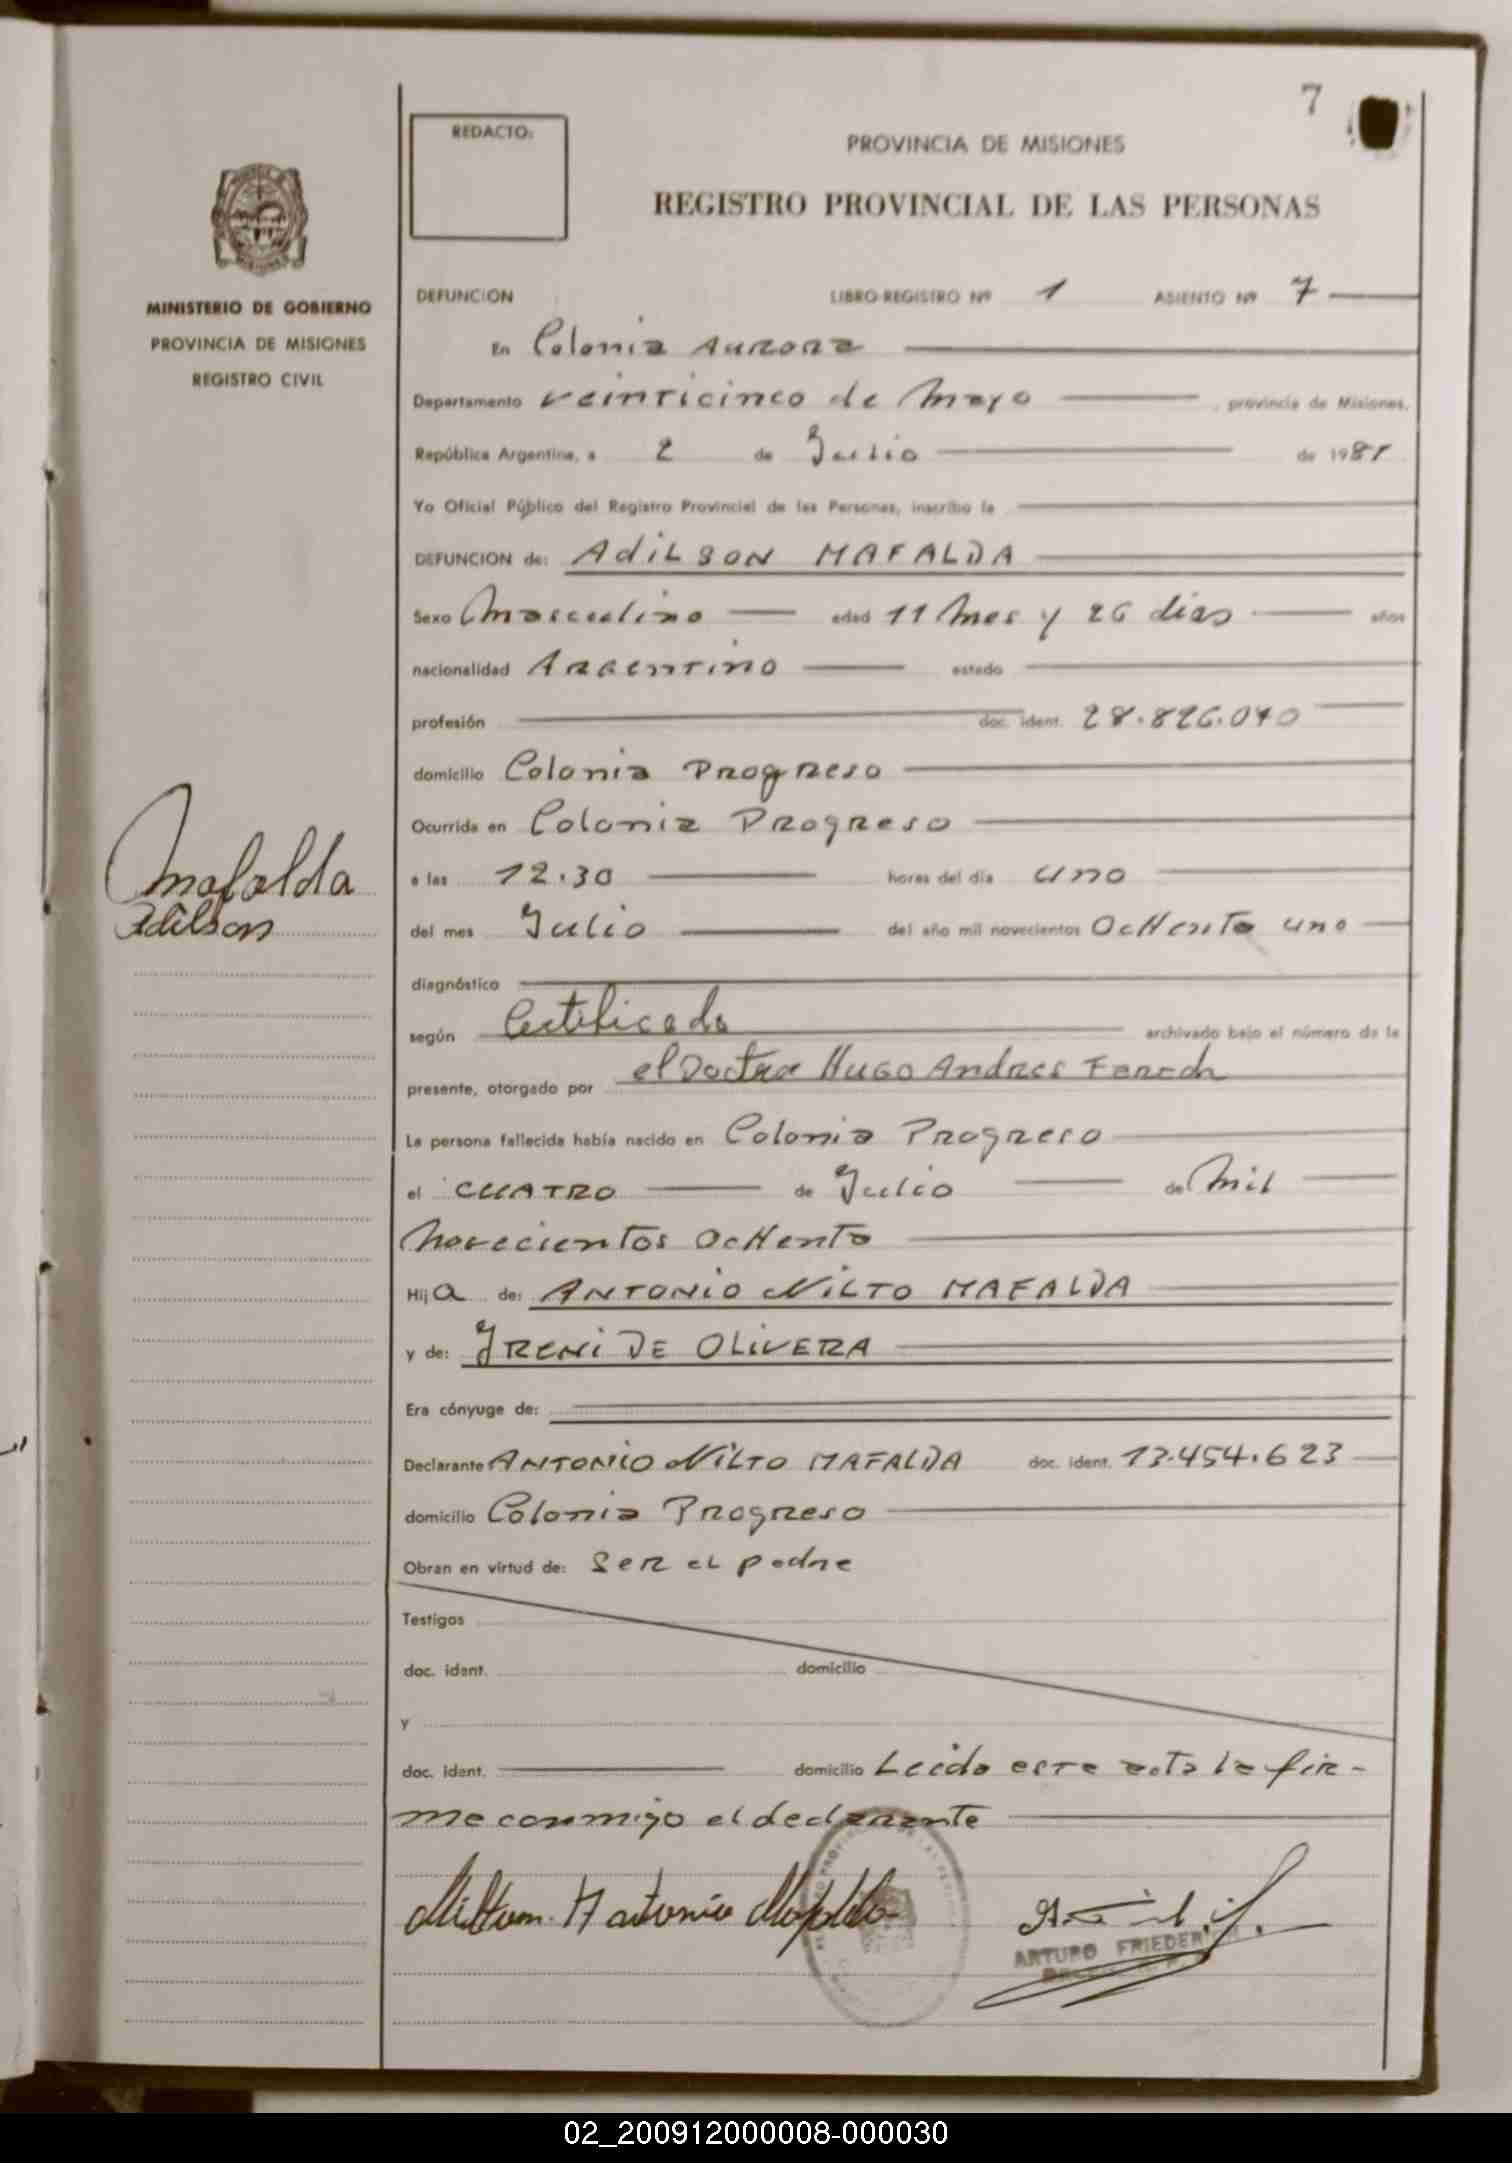 7
REDACTO:
PROVINCIA DE MISIONES
REGISTRO PROVINCIAL DE LAS PERSONAS
MINISTERIO DE GOBIERNO
PROVINCIA DE MISIONES
REGISTRO CIVIL
DEFUNCION LIBRO-REGISTRO Nº 1 ASIENTO Nº 7
En Colonia Aurora
Departamento veinticinco de Mayo , provincia de Misiones.
República Argentina, a 2 de Julio de 1981
Yo Oficial Público del Registro Provincial de las Personas, inscribo la
DEFUNCION de: ADILSON MAFALDA
Sexo Masculino edad 11 Mes y 26 dias años
nacionalidad Argentino estado
profesión doc. ident. 28.826.040
domicilio Colonia Progreso
Ocurrida en Colonia Progreso
a las 12.30 horas del día uno
del mes Julio del año mil novecientos Ochenta uno
Mafalda
Adilson
diagnóstico
según Certificado archivado bajo el número de la
presente, otorgado por el Doctor Hugo Andres
La persona fallecida había nacido en Colonia Progreso
el CUATRO de Julio de Mil
Novecientos Ochenta
Hija de: ANTONIO NILTO MAFALDA
y de: IRENI DE OLIVERA
Era cónyuge de:
Declarante ANTONIO NILTO MAFALDA doc. ident. 13.454.623
domicilio Colonia Progreso
Obran en virtud de: Ser el padre
Testigos
doc. ident. domicilio
y
doc. ident. domicilio Leida este acta la fir-
ma conmigo el declarante
Miltom Antonio Mafalda
ARTURO FRIEDERI
02_200912000008-000030